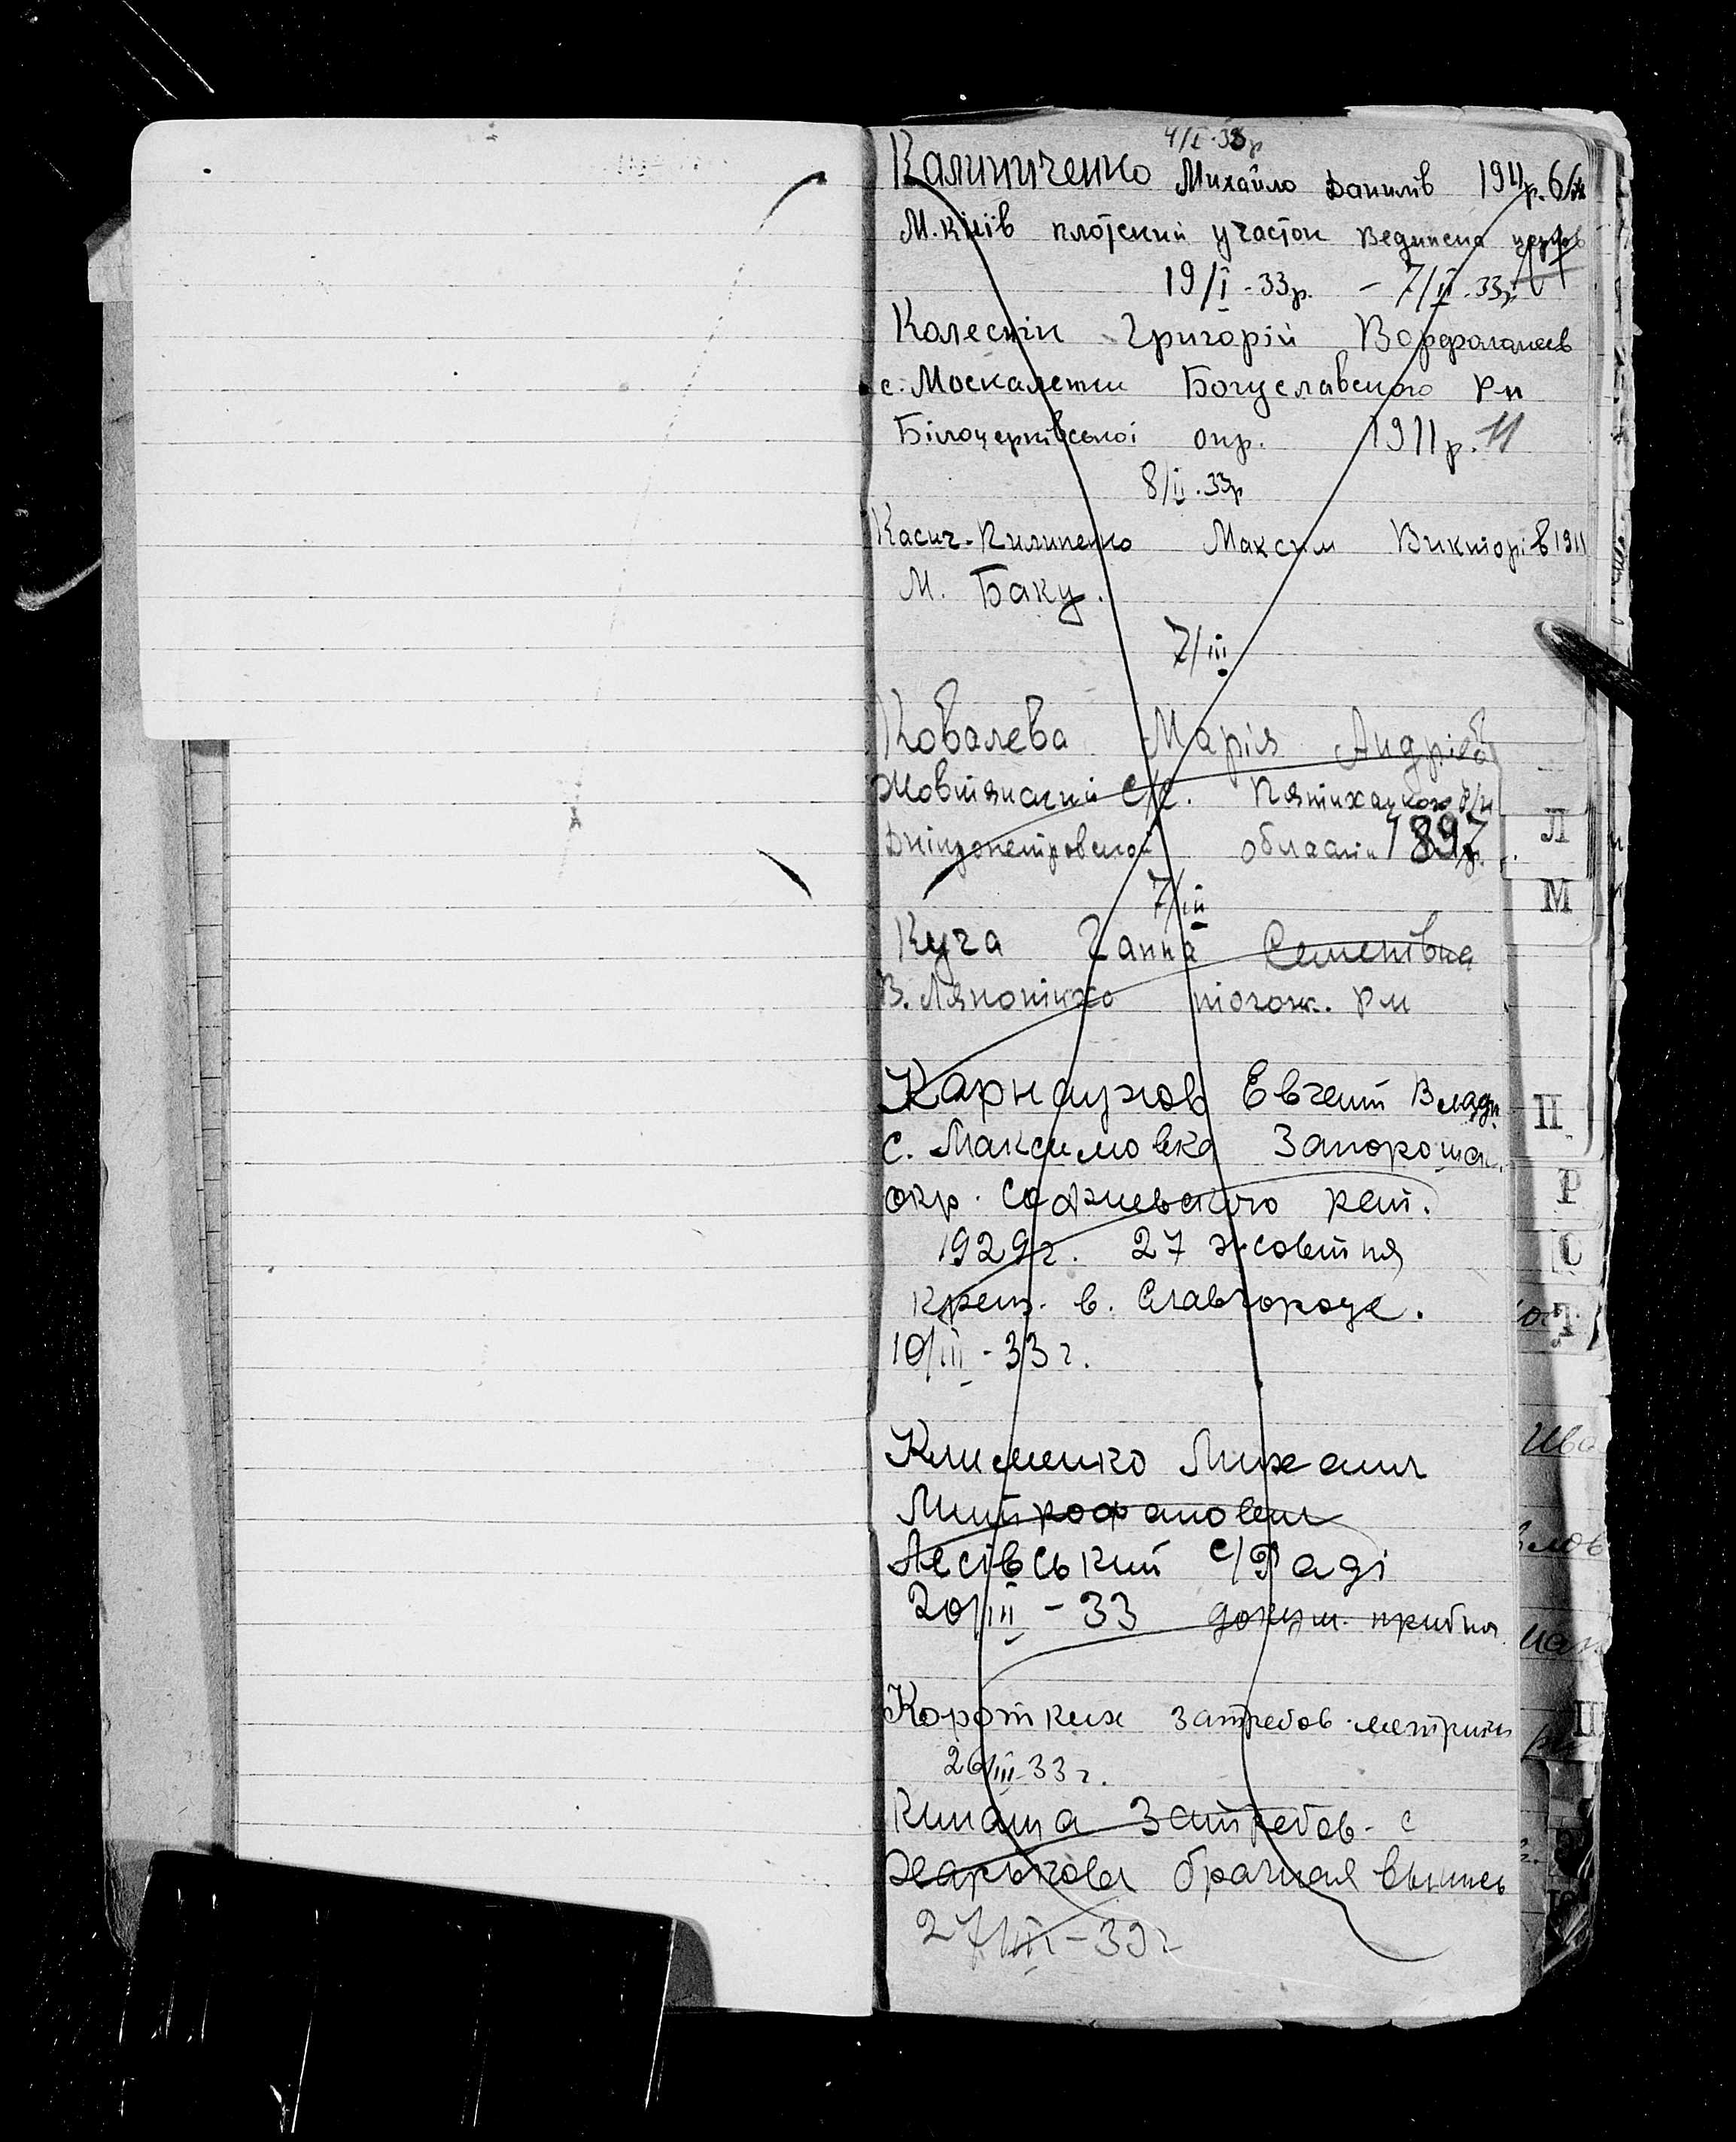 4/I-33р
Калиниченко Михайло Данилів 1911р. 6/ІХ
М. Київ плоский участок Веденска церков
19/I-33р. – 7/II-33р.
Калеснік Григорій Ворфаламеев
с. Москаленки Богуславского р-н
Білоцерківської окр. 1911р. 11
8/II.33р
Касич-Пилипенко Максим Викторів 1911
М. Баку.
7/III
Ковалева Марія Андріев
Жовтянский С/С. Пятихацкого р/н
Дніпропетровской области 1897р.
7/III
Куча Ганна Семенівна
В. рн
Карнаухов Евгений Влади
с. Максимовка Запорожск.
окр. Софиевского рей.
1929г. 27 жовтня
крещ. в. Славгороде.
10/III-33г.
Клименко Михаил
Митрофанович
Лесівський с/Раді
20/III-33 докум. прибил
Коротких затребов. метрики
26/III-33г.
затребов. с
Харькова брачная выпись
27/III-33г
Л
М
П
Р
С
Т
Ива